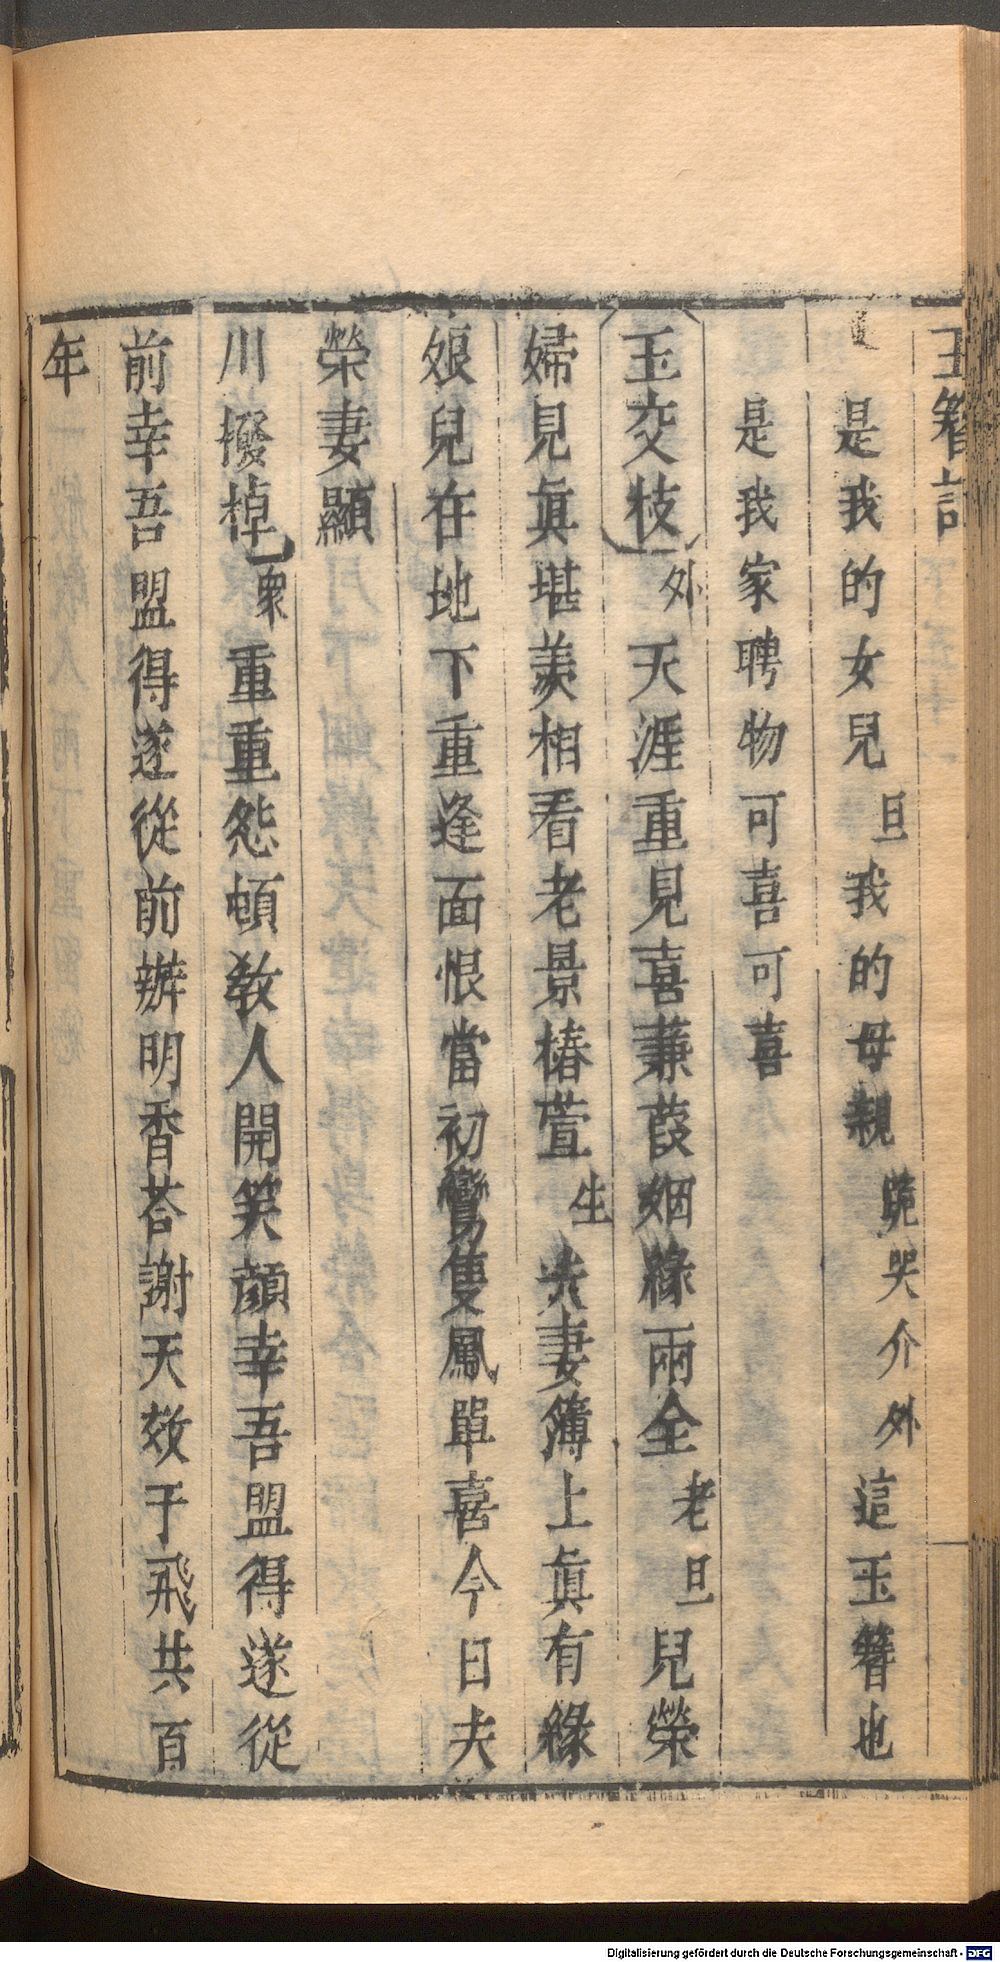 玉簪記
是我的女兒旦我的母親跪哭介外這玉簪也
是我家聘物可喜可喜
玉交枝外天涯重見喜蒹葭姻緣兩全老旦兒榮
婦見眞堪羨相看老景椿萱生夫妻簿上眞有緣
娘兒在地下重逢面恨當初鸞隻鳳單喜今日夫
榮妻顯
川撥棹衆重重怨頓教人開笑顔幸吾盟得遂從
前幸吾盟得遂從前辦明香荅謝天效于飛共百
年
Digitalisierung gefördert durch die Deutsche Forschungsgemeinschaft - DFG